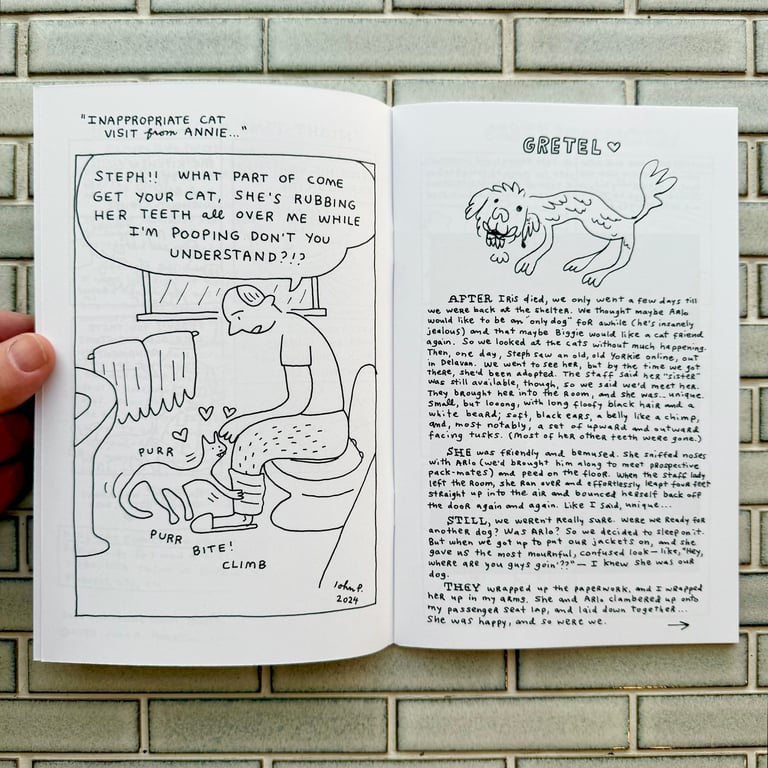 "INAPPROPRIATE CAT
VISIT from ANNIE..."
STEPH!! WHAT PART OF COME
GET YOUR CAT, SHE'S RUBBING
HER TEETH all OVER ME WHILE
I'M POOPING DON'T YOU
UNDERSTAND?!?
PURR
PURR
BITE!
CLIMB
John P.
2024
GRETEL ♡
AFTER Iris died, we only went a few days till
we were back at the shelter. We thought maybe Arlo
would like to be an "only dog" for awhile (he's insanely
jealous) and that maybe Biggie would like a cat friend
again. So we looked at the cats without much happening.
Then, one day, Steph saw an old, old Yorkie online, out
in Delavan. We went to see her, but by the time we got
there, she'd been adopted. The staff said her "sister"
was still available, though, so we said we'd meet her.
They brought her into the room, and she was... unique.
Small, but looong, with long floofy black hair and a
white beard; soft, black ears, a belly like a chimp,
and, most notably, a set of upward and outward
facing tusks. (Most of her other teeth were gone.)
SHE was friendly and bemused. She sniffed noses
with Arlo (we'd brought him along to meet prospective
pack-mates) and peed on the floor. When the staff lady
left the room, she ran over and effortlessly leapt four feet
straight up into the air and bounced herself back off
the door again and again. Like I said, unique...
STILL, we weren't really sure. Were we ready for
another dog? Was Arlo? So we decided to sleep on it.
But when we got up to put our jackets on, and she
gave us the most mournful, confused look — like, "Hey,
where are you guys goin'??" — I knew she was our
dog.
THEY wrapped up the paperwork, and I wrapped
her up in my arms. She and Arlo clambered up onto
my passenger seat lap, and laid down together...
She was happy, and so were we.
→